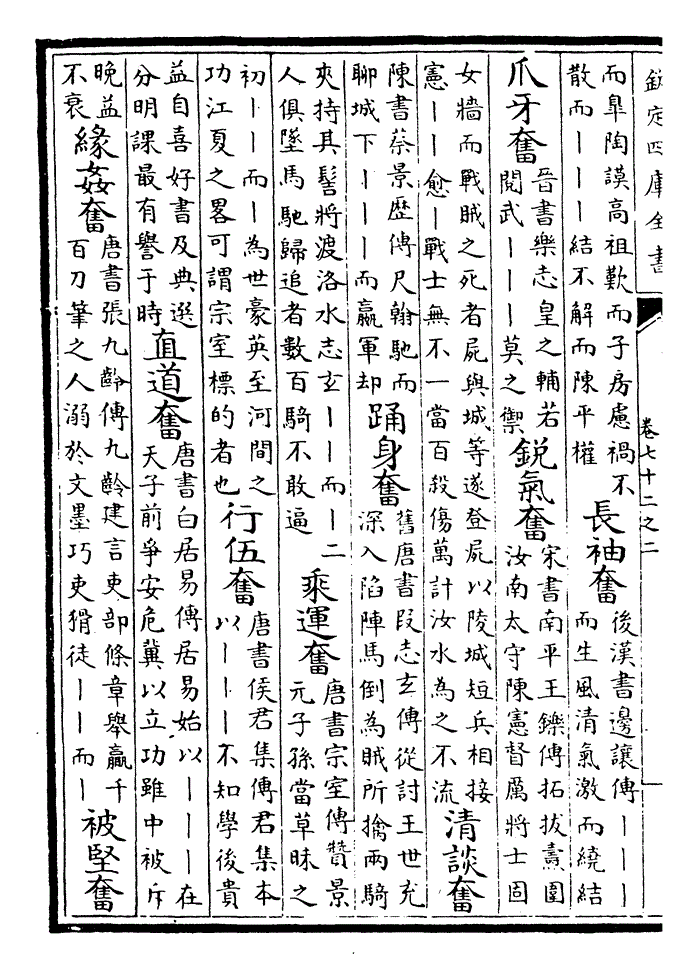 欽定四庫全書 卷七十二之二
而臯陶謨高祖歎而子房慮禍不
散而丨丨丨結不解而陳平權
長袖奮
後漢書邊讓傳丨丨丨
而生風清氣激而繞結
爪牙奮
晉書樂志皇之輔若
閱武丨丨丨莫之禦
鋭氣奮
宋書南平王鑠傳拓拔燾圍
汝南太守陳憲督厲將士固
女牆而戰賊之死者屍與城等遂登屍以陵城短兵相接
憲丨丨愈丨戰士無不一當百殺傷萬計汝水為之不流
清談奮
陳書蔡景歴傳尺翰馳而
聊城下丨丨丨而嬴軍却
踊身奮
舊唐書叚志玄傳從討王世充
深入陷陣馬倒為賊所擒兩騎
夾持其髻將渡洛水志玄丨丨而丨二
人俱墜馬馳歸追者數百騎不敢逼
乘運奮
唐書宗室傳贊景
元子孫當草昧之
初丨丨而丨為世豪英至河間之
功江夏之畧可謂宗室標的者也
行伍奮
唐書侯君集傳君集本
以丨丨丨不知學後貴
益自喜好書及典選
分明課最有譽于時
直道奮
唐書白居易傳居易始以丨丨丨在
天子前爭安危冀以立功雖中被斥
晚益
不衰
緣姦奮
唐書張九齡傳九齡建言吏部條章舉贏千
百刀筆之人溺於文墨巧吏猾徒丨丨而丨
被堅奮